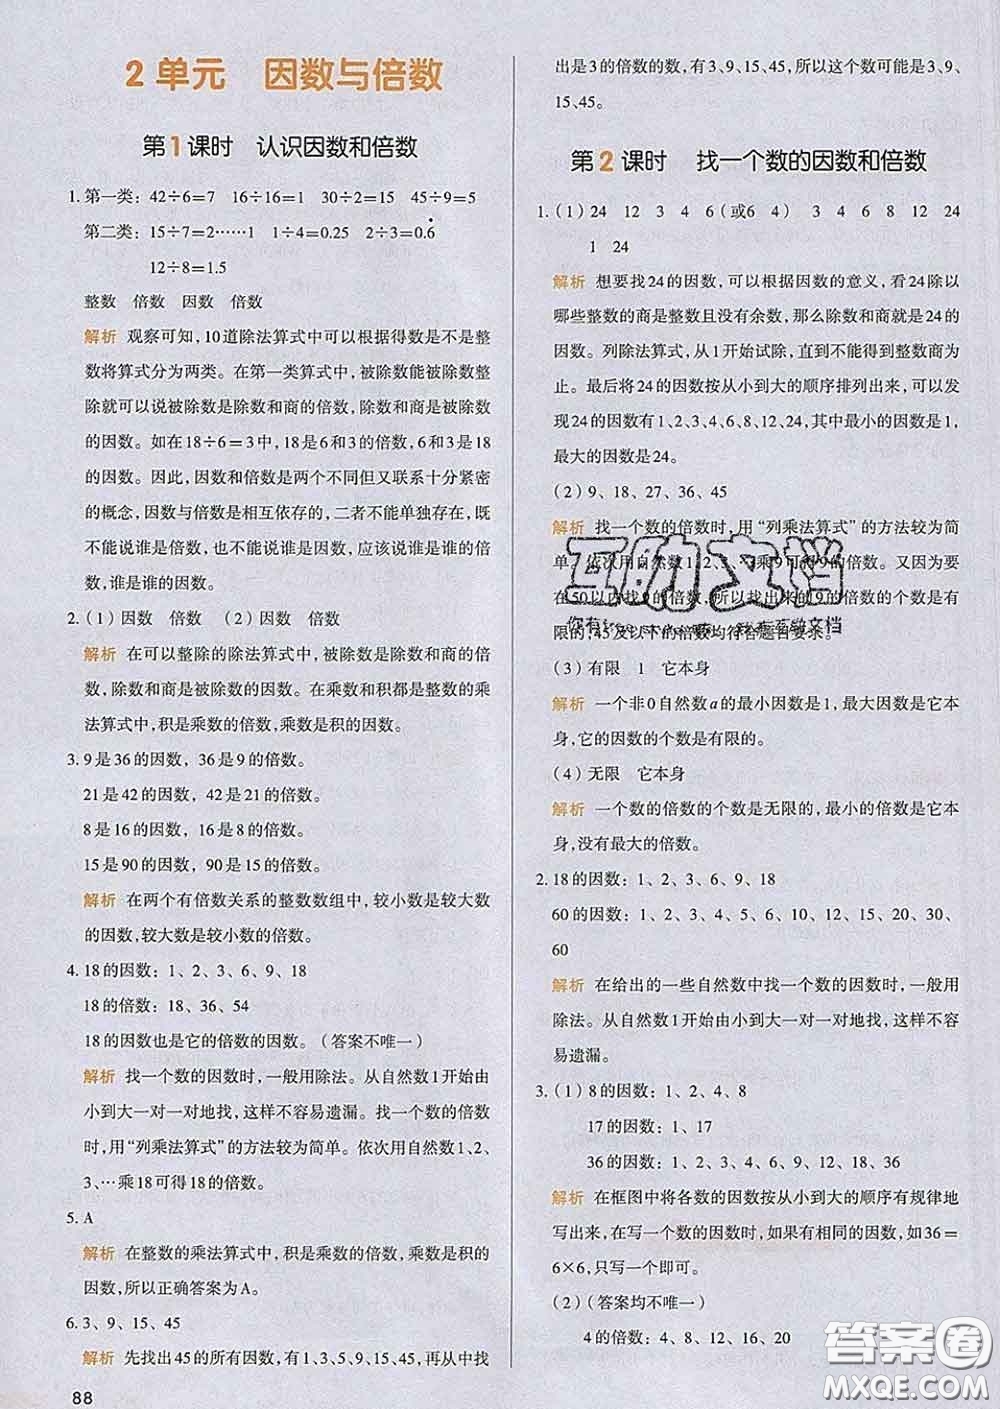 2 单元 因数与倍数
第1课时 认识因数和倍数
1. 第一类：42÷6=7 16÷16=1 30÷2=15 45÷9=5
第二类：15÷7=2……1 1÷4=0.25 2÷3=0.6̇
12÷8=1.5
整数 倍数 因数 倍数
解析 观察可知，10道除法算式中可以根据得数是不是整
数将算式分为两类。在第一类算式中，被除数能被除数整
除就可以说被除数是除数和商的倍数，除数和商是被除数
的因数。如在18÷6=3中，18是6和3的倍数，6和3是18
的因数。因此，因数和倍数是两个不同但又联系十分紧密
的概念，因数与倍数是相互依存的，二者不能单独存在，既
不能说谁是倍数，也不能说谁是因数，应该说谁是谁的倍
数，谁是谁的因数。
2. （1）因数 倍数 （2）因数 倍数
解析 在可以整除的除法算式中，被除数是除数和商的倍
数，除数和商是被除数的因数。在乘数和积都是整数的乘
法算式中，积是乘数的倍数，乘数是积的因数。
3. 9是36的因数，36是9的倍数。
21是42的因数，42是21的倍数。
8是16的因数，16是8的倍数。
15是90的因数，90是15的倍数。
解析 在两个有倍数关系的整数数组中，较小数是较大数
的因数，较大数是较小数的倍数。
4. 18的因数：1、2、3、6、9、18
18的倍数：18、36、54
18的因数也是它的倍数的因数。（答案不唯一）
解析 找一个数的因数时，一般用除法。从自然数1开始由
小到大一对一对地找，这样不容易遗漏。找一个数的倍数
时，用“列乘法算式”的方法较为简单。依次用自然数1、2、
3、…乘18可得18的倍数。
5. A
解析 在整数的乘法算式中，积是乘数的倍数，乘数是积的
因数，所以正确答案为A。
6. 3、9、15、45
解析 先找出45的所有因数，有1、3、5、9、15、45，再从中找
88
出是3的倍数的数，有3、9、15、45，所以这个数可能是3、9、
15、45。
第2课时 找一个数的因数和倍数
1. （1）24 12 3 4 6（或6 4） 3 4 6 8 12 24
1 24
解析 想要找24的因数，可以根据因数的意义，看24除以
哪些整数的商是整数且没有余数，那么除数和商就是24的
因数。列除法算式，从1开始试除，直到不能得到整数商为
止。最后将24的因数按从小到大的顺序排列出来，可以发
现24的因数有1、2、3、4、6、8、12、24，其中最小的因数是1，
最大的因数是24。
（2）9、18、27、36、45
解析 找一个数的倍数时，用“列乘法算式”的方法较为简
单。依次用自然数1、2、3、乘9可得9的倍数。又因为要
在50以内找9的倍数，所以找出来的9的倍数的个数是有
限的，45及以下的倍数均符合题目要求。
互助文档
（3）有限 1 它本身
解析 一个非0自然数a的最小因数是1，最大因数是它本
身，它的因数的个数是有限的。
（4）无限 它本身
解析 一个数的倍数的个数是无限的，最小的倍数是它本
身，没有最大的倍数。
2. 18的因数：1、2、3、6、9、18
60的因数：1、2、3、4、5、6、10、12、15、20、30、
60
解析 在给出的一些自然数中找一个数的因数时，一般用
除法。从自然数1开始由小到大一对一对地找，这样不容
易遗漏。
3. （1）8的因数：1、2、4、8
17的因数：1、17
36的因数：1、2、3、4、6、9、12、18、36
解析 在框图中将各数的因数按从小到大的顺序有规律地
写出来，在写一个数的因数时，如果有相同的因数，如36=
6×6，只写一个即可。
（2）（答案均不唯一）
4的倍数：4、8、12、16、20
答案圈
MXQE.COM